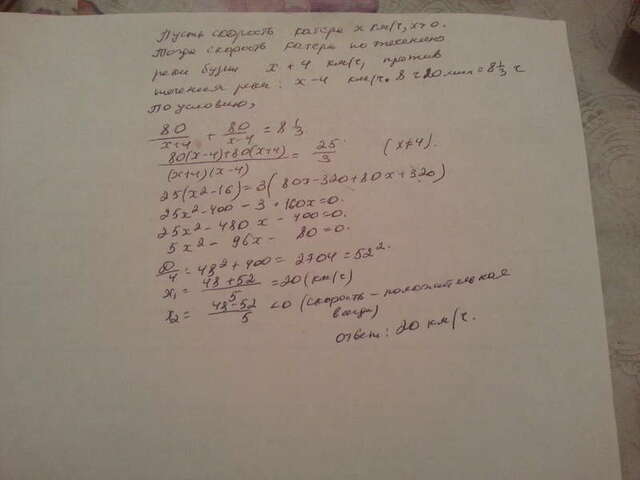 Пусть скорость катера x км/ч, x>0.
Тогда скорость катера по течению
реки будет x + 4 км/ч, против
течения реки: x-4 км/ч. 8 ч 20 мин = 8 1/3 ч
По условию,
80/(x+4) + 80/(x-4) = 8 1/3.
(80(x-4)+80(x+4))/((x+4)(x-4)) = 25/3 (x≠4).
25(x²-16)=3(80x-320+80x+320)
25x²-400-3·160x=0.
25x²-480x-400=0.
5x²-96x-80=0.
D/4=48²+400=2704=52².
x₁=(48+52)/5=20(км/ч)
x₂=(48-52)/5 <0 (скорость-положительная
всегда)
ответ: 20 км/ч.